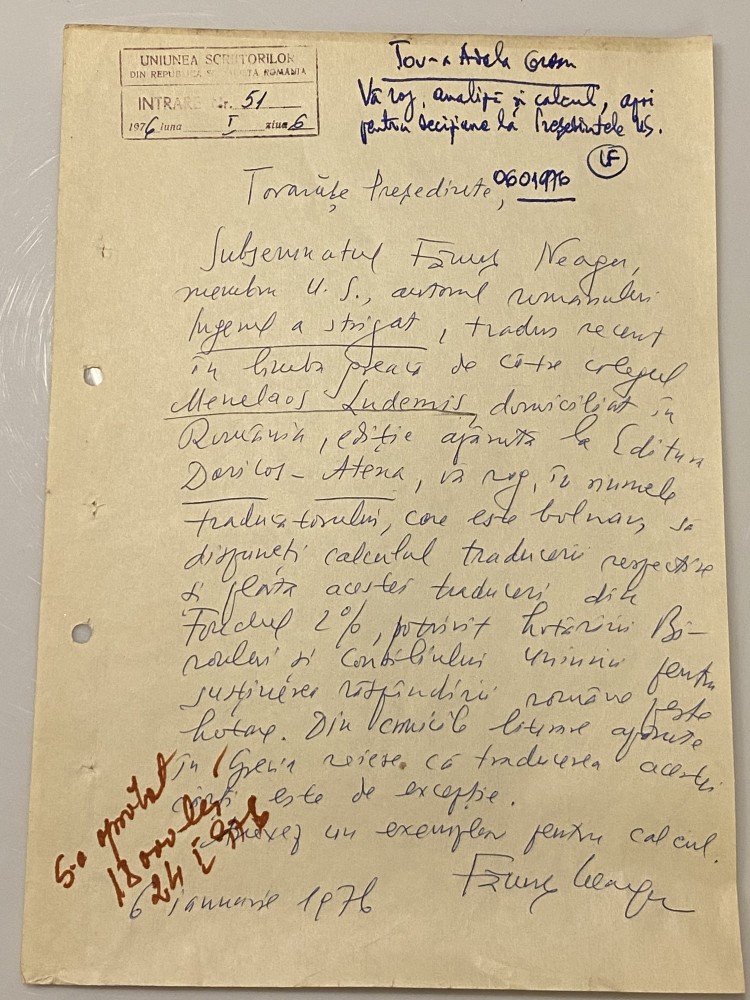 UNIUNEA SCRIITORILOR
DIN REPUBLICA SOCIALISTA ROMANIA
INTRARE Nr. 51
1976 luna I ziua 6
Tov-a Adela
Vă rog, analiză și calcul, apoi
pentru decizione la Președintele US.
0601976
Tovarășe Președinte,
Subsemnatul Fănuș Neagu,
membru U.S., autorul romanului
Îngerul a strigat, tradus recent
în limba greacă de către colegul
Menelaos Ludemis, domiciliat în
România, ediție apărută la Editura
Doricos – Atena, vă rog, în numele
traducătorului, care este bolnav, să
dispuneți calculul traducerii respective
și plata acestei traduceri din
Fondul 2%, potrivit hotărîrii Bi-
roului și Consiliului Uniunii pentru
susținerea răspîndirii române peste
hotare. Din cronicile literare apărute
în Grecia reiese că traducerea acestei
cărți este de excepție.
Anexez un exemplar pentru calcul.
Fănuș Neagu
6 ianuarie 1976
S-a aprobat
18000 lei
24 I 976